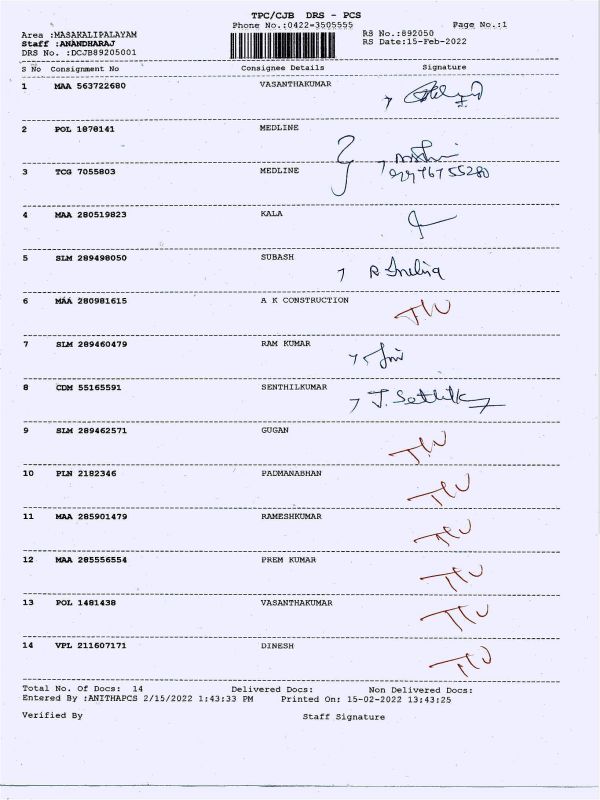 TPC/CJB DRS - PCS
Phone No.:0422-3505555 Page No.:1
Area :MASAKALIPALAYAM RS No.:892050
Staff :ANANDHARAJ RS Date:15-Feb-2022
DRS No. :DCJB89205001
S No Consignment No Consignee Details Signature
1 MAA 563722680 VASANTHAKUMAR
2 POL 1878141 MEDLINE
3 TCG 7055803 MEDLINE
4 MAA 280519823 KALA
5 SLM 289498050 SUBASH
6 MAA 280981615 A K CONSTRUCTION
7 SLM 289460479 RAM KUMAR
8 CDM 55165591 SENTHILKUMAR
9 SLM 289462571 GUGAN
10 PLN 2182346 PADMANABHAN
11 MAA 285901479 RAMESHKUMAR
12 MAA 285556554 PREM KUMAR
13 POL 1481438 VASANTHAKUMAR
14 VPL 211607171 DINESH
Total No. Of Docs: 14 Delivered Docs: Non Delivered Docs:
Entered By :ANITHAPCS 2/15/2022 1:43:33 PM Printed On: 15-02-2022 13:43:25
Verified By Staff Signature